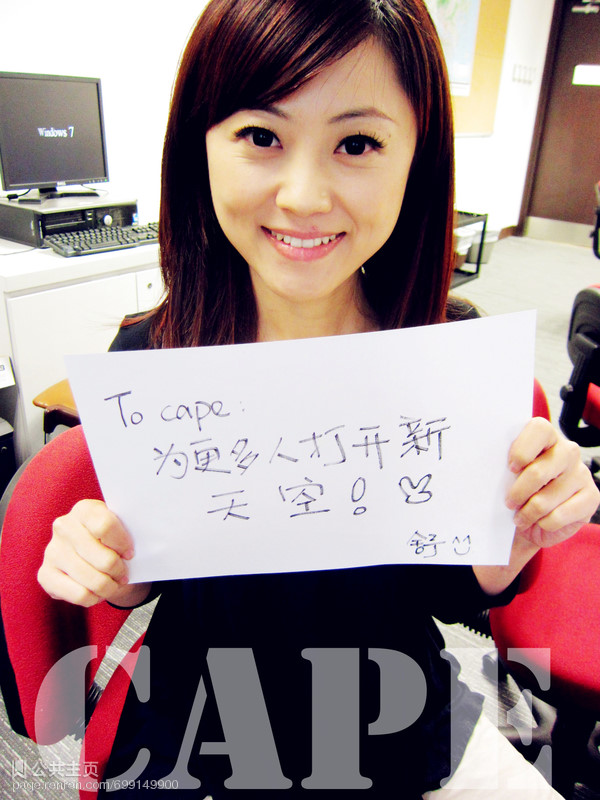 Windows 7
To cape:
为更多人打开新
天空!
舒
CAPE
公共主页
page.renren.com/699149900